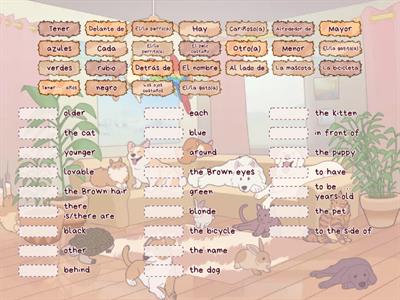 Tener Delante de El/la Hay Cariñoso(a) Alrededor de Mayor
azules Cada El/la El pelo castaño Otro(a) Menor El/la gatito(a)
verdes rubio Detrás de El nombre Al lado de La mascota La bicicleta
Tener años negro Los ojos castaños El/la gato(a)
older each the kitten
the cat blue in front of
younger around the puppy
lovable the Brown eyes to have
the Brown hair green to be years old
there is/there are blonde the pet
black the bicycle to the side of
other the name
behind the dog